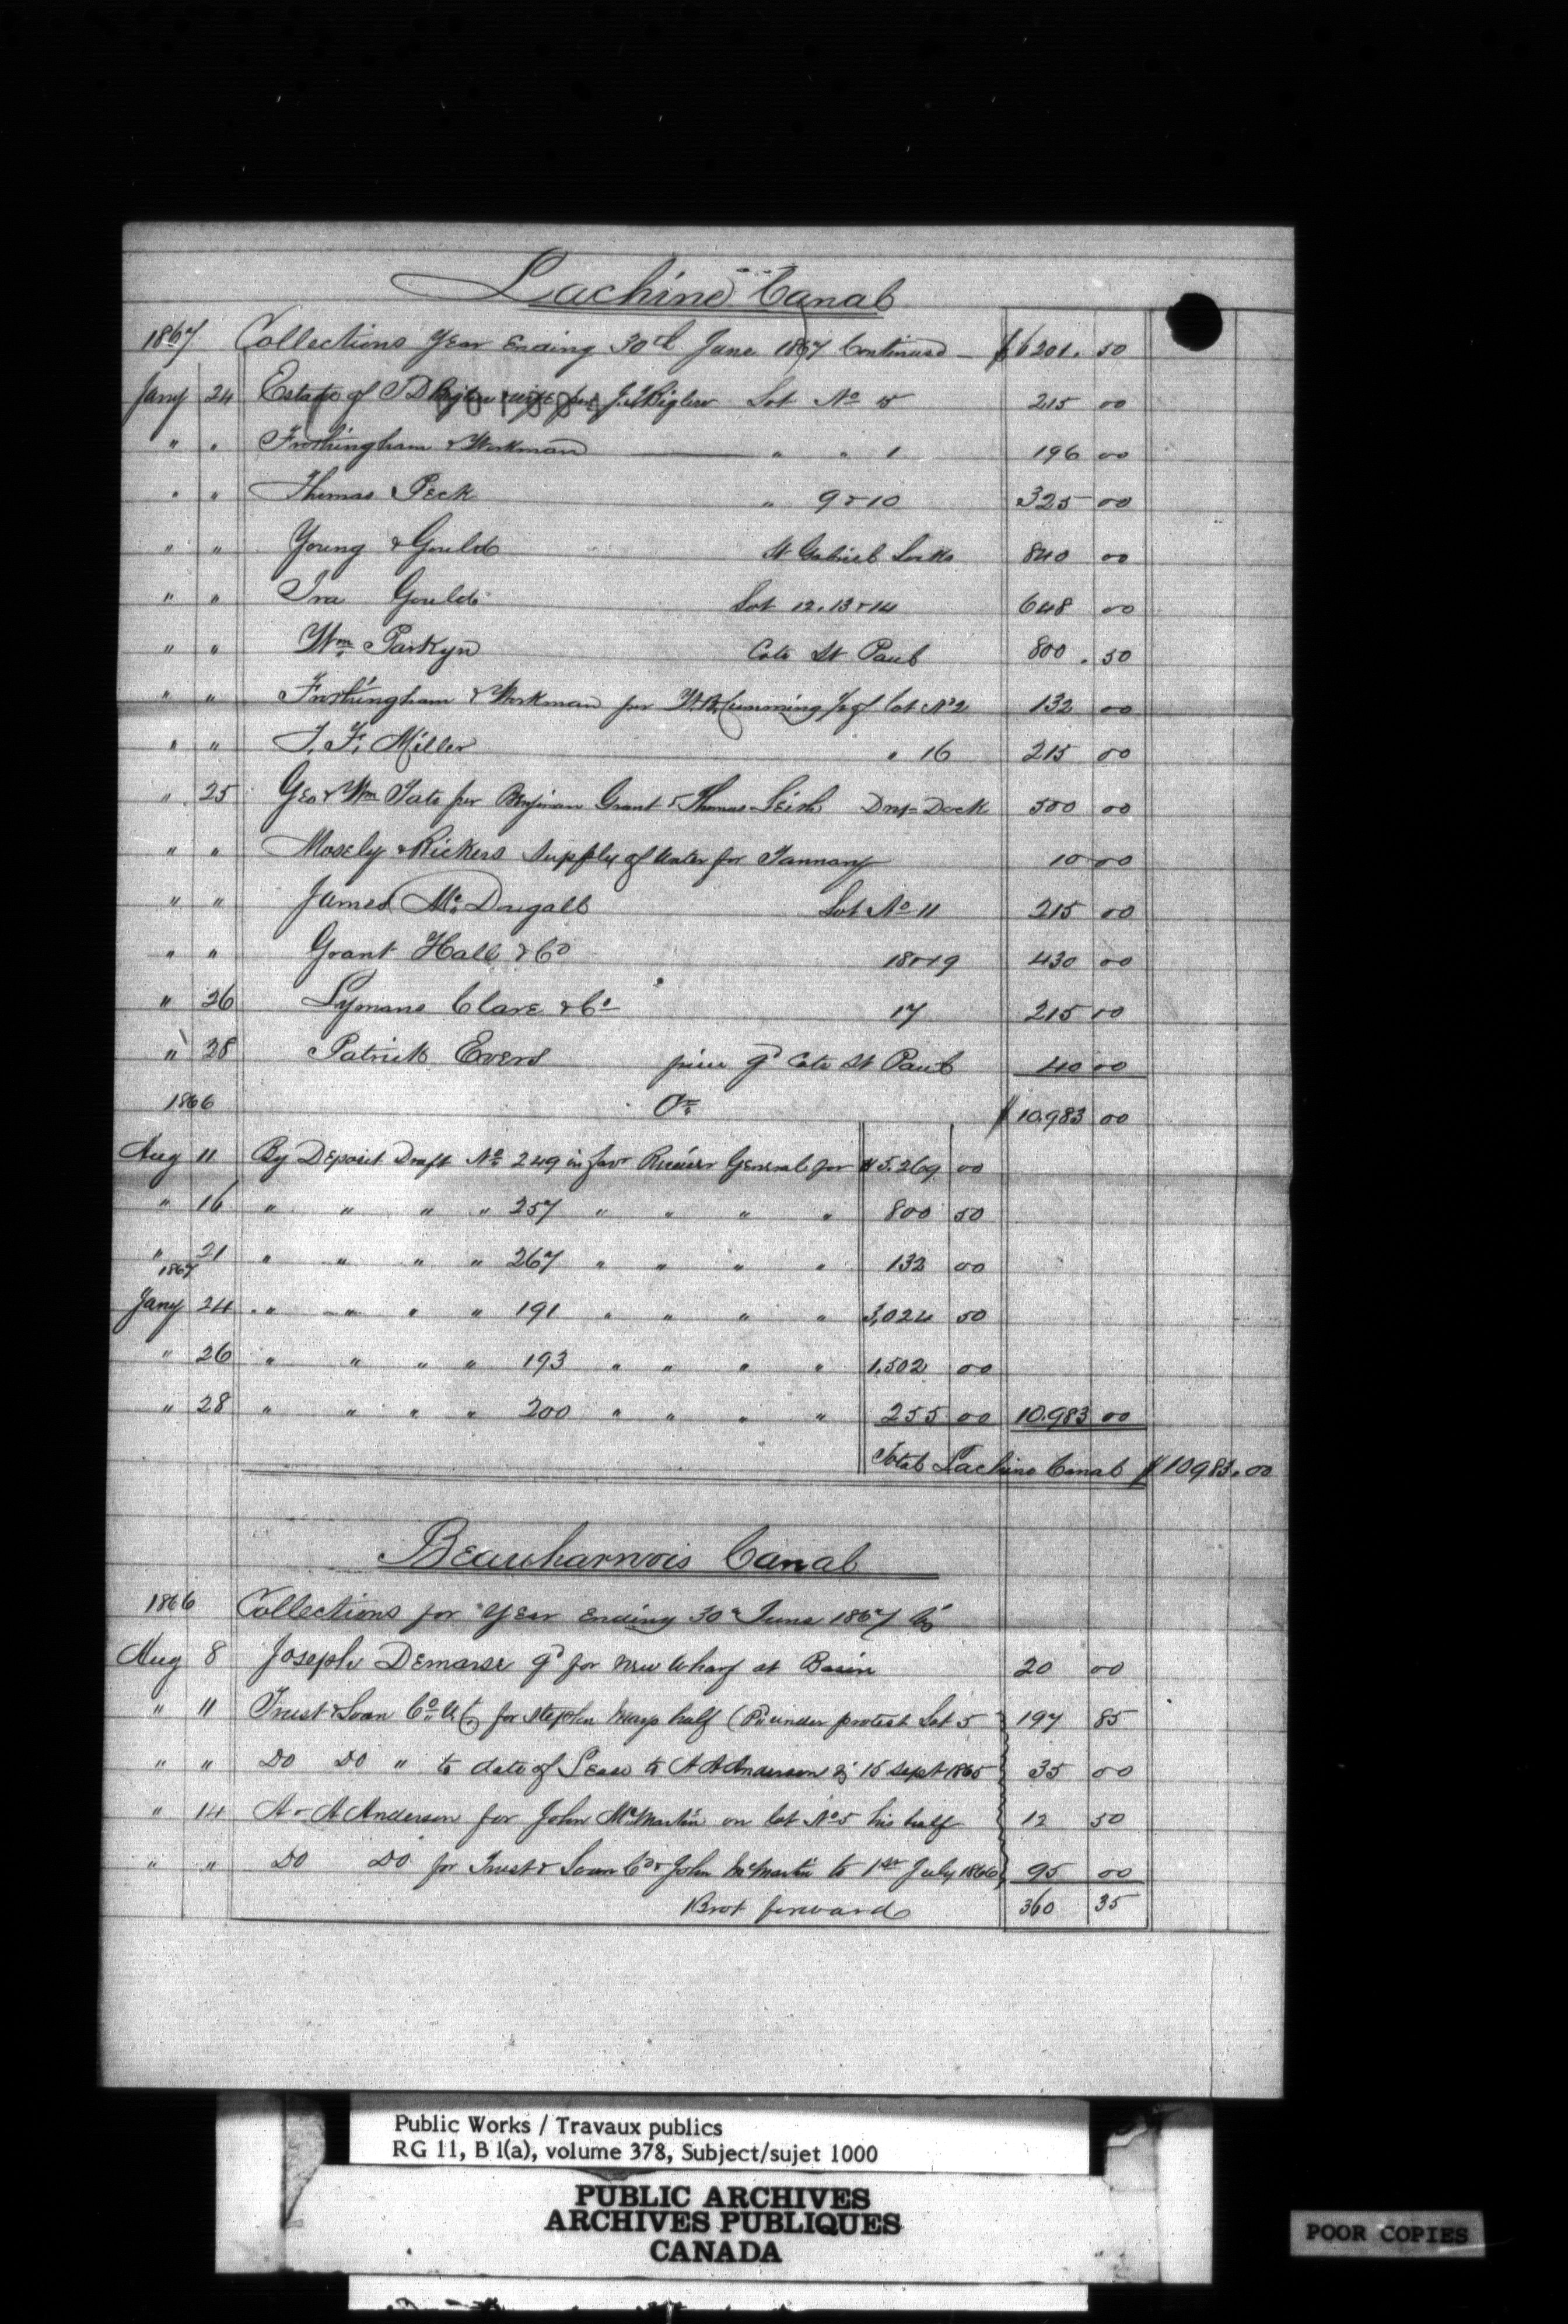 Lachine Canal
1867 Collections Year Ending 30th June 1867 Continued - $6201.50
Jany 24 Estate of J D Biglow per J. Biglow Lot No 15 215 00
" " Frothingham & Workman " " 1 196 00
" " Thomas Peck " 9 & 10 325 00
" " Young & Gould St Gabriel Locks 840 00
" " Ira Gould Lot 12. 13 & 14 648 00
" " Wm Parkyn Cote St Paul 800.50
" " Frothingham & Workman per W.B. Cumming ½ of lot No 2 132 00
" " J. F. Miller " 16 215 00
" 25 Geo & Wm Tate per Benjiman Grant & Thomas Leish Dry-Dock 500 00
" " Mosely & Rickers supply of water for Tannary 10 00
" " James Mc Dougall Lot No 11 215 00
" " Grant Hall & Co 18 & 19 430 00
" 26 Lymans Clare & Co 17 215 00
" 28 Patrick Evers piece gd Cote St Paul 40 00
1866 Cr $10,983 00
Aug 11 By Deposit Draft No 249 in favr Receiver General for $5,269 00
" 16 " " " " 257 " " " " 800 50
" 21 " " " " 267 " " " " 132 00
1867
Jany 24 " " " " 191 " " " " 3,024 50
" 26 " " " " 193 " " " " 1,502 00
" 28 " " " " 200 " " " " 255 00 10,983 00
Total Lachine Canal $10983.00
Beauharnois Canal
1866 Collections for Year Ending 30th June 1867
Aug 8 Joseph Demarse gd for new Wharf at Basin 20 00
" 11 Trust & Loan Co U.C. for Stephen Mays half (Pd under protest Lot 5 197 85
" " Do Do " to date of Lease to A A Anderson 15 Sept 1865 35 00
" 14 A - A Anderson for John McMartin on lot No 5 his half 12 50
" " Do Do for Trust & Loan Co & John McMartin to 1st July 1866 95 00
Brot forward 360 35
Public Works / Travaux publics
RG 11, B1(a), volume 378, Subject/sujet 1000
PUBLIC ARCHIVES
ARCHIVES PUBLIQUES
CANADA
POOR COPIES